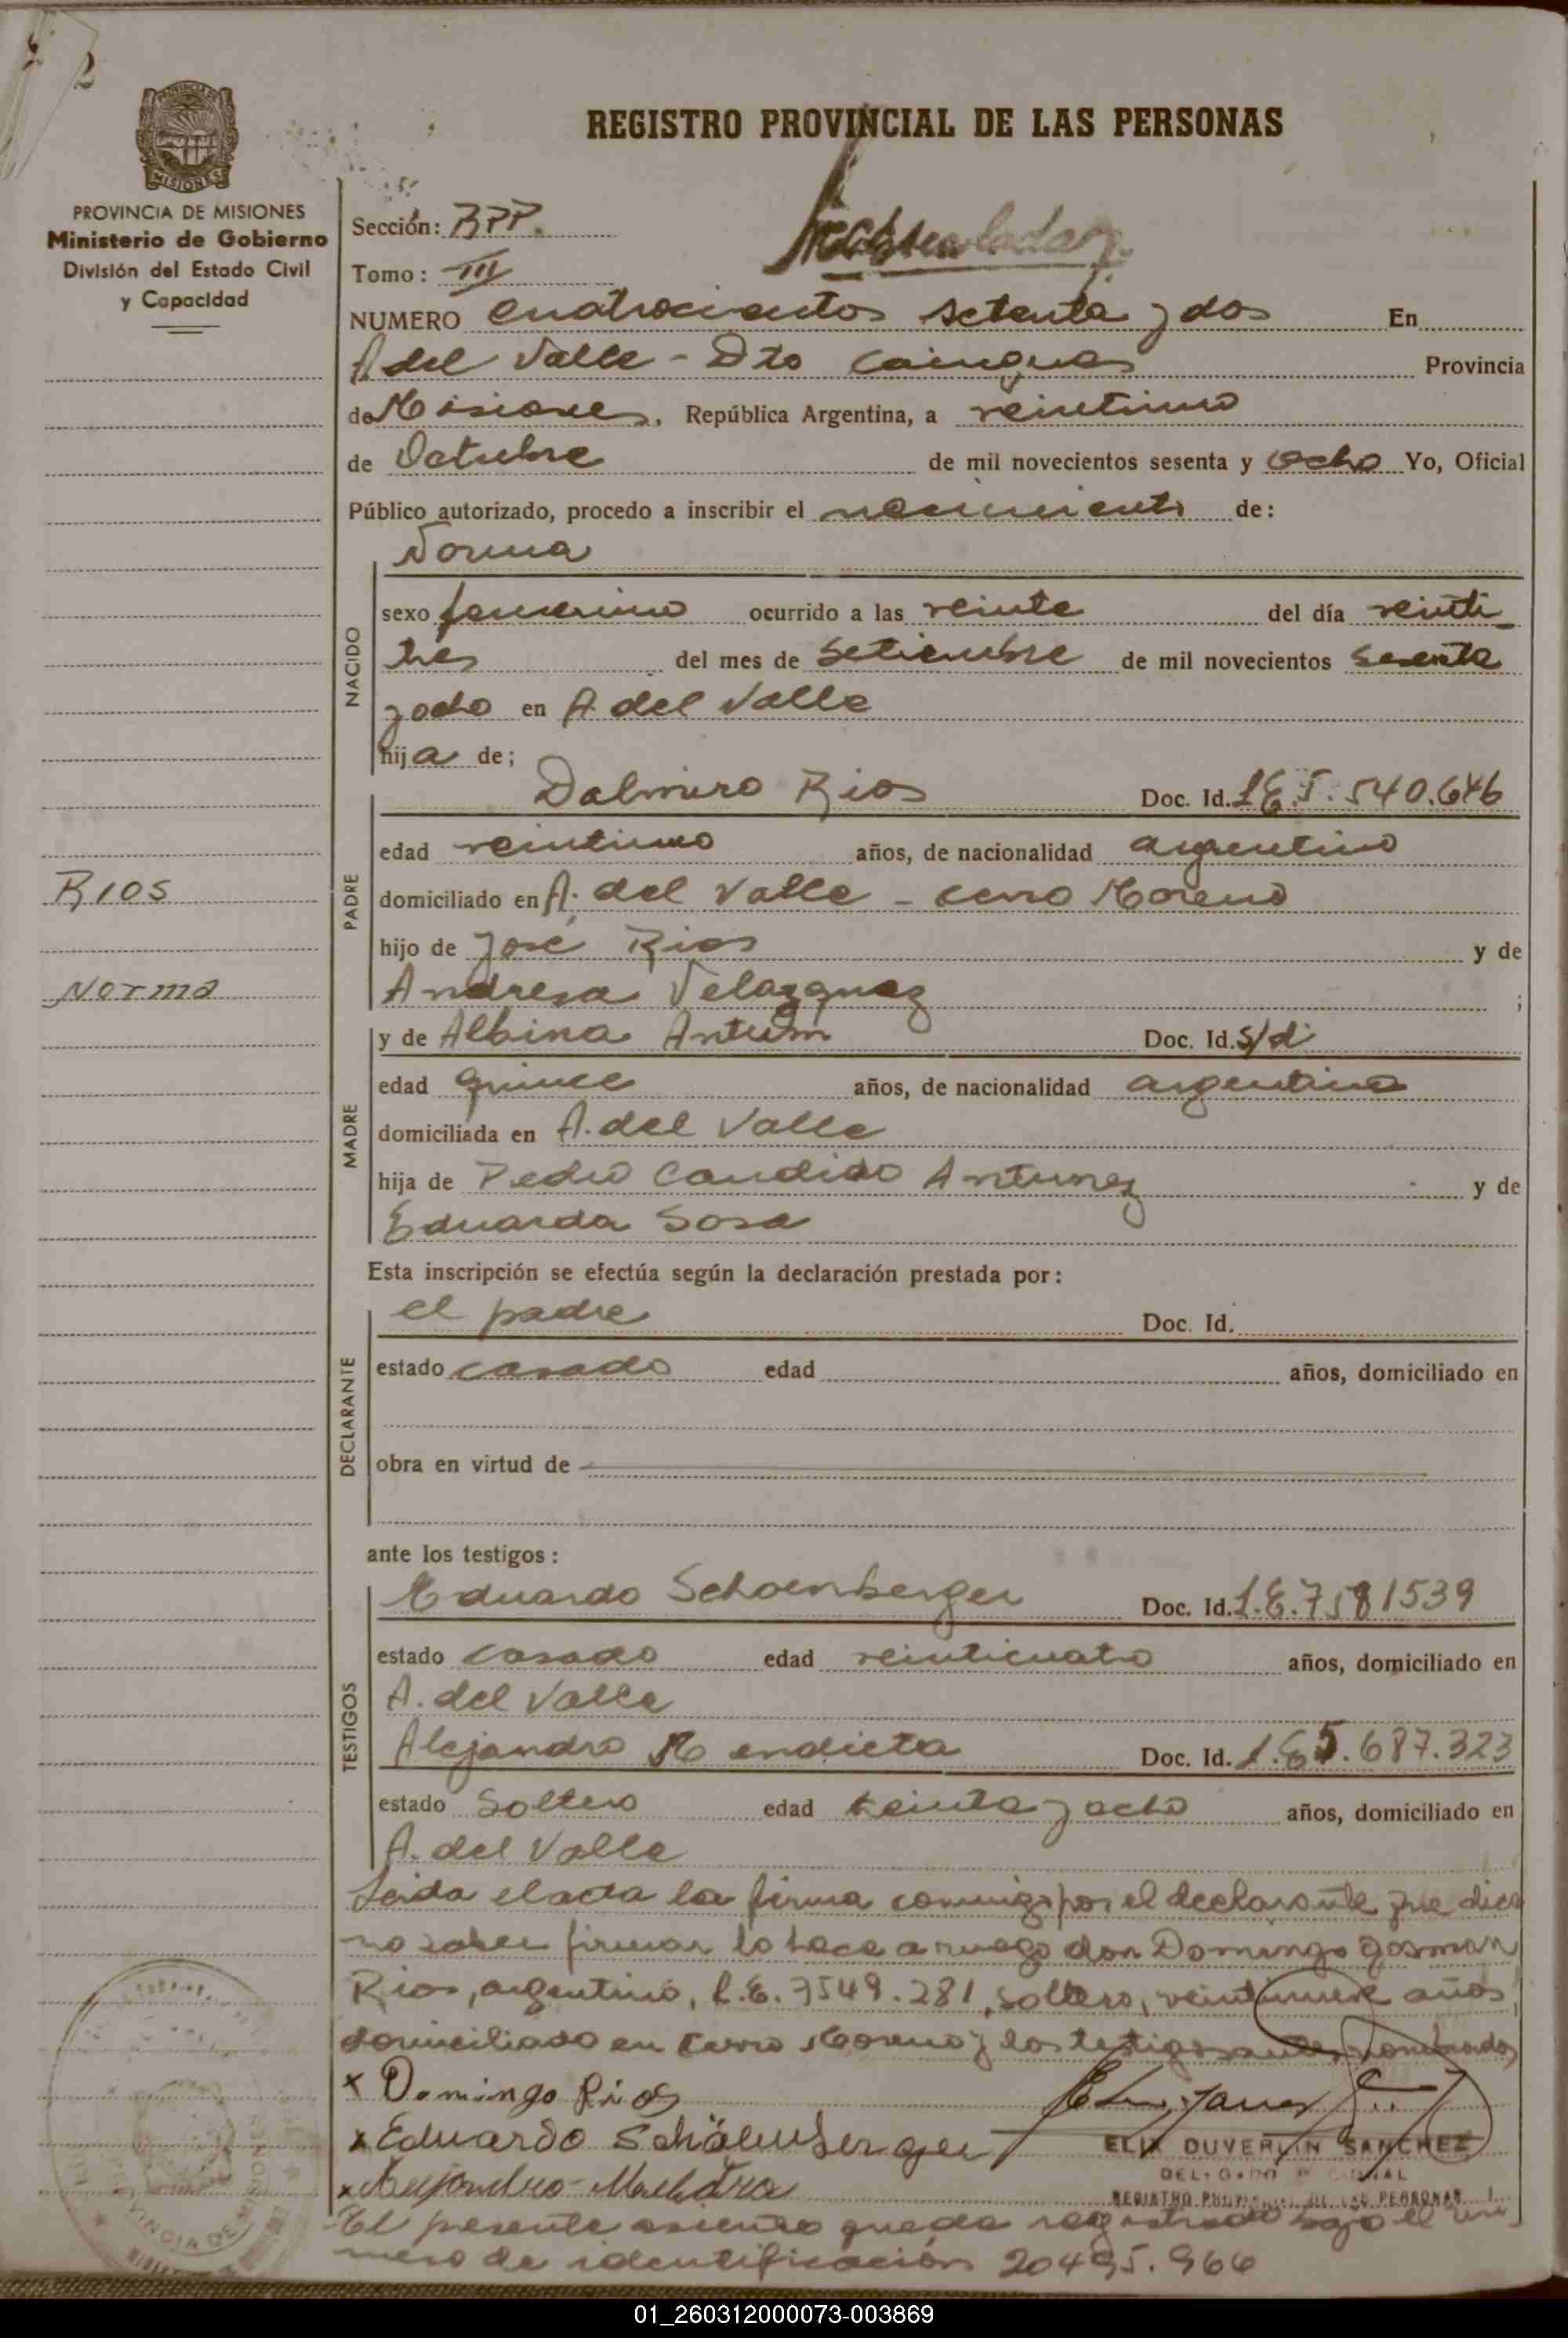 2
REGISTRO PROVINCIAL DE LAS PERSONAS
MISIONES
PROVINCIA DE MISIONES
Ministerio de Gobierno
División del Estado Civil
y Capacidad
Sección: BPP.
Tomo: III
NUMERO cuatrocientos setenta y dos En
A del Valle - Dto Cainguas Provincia
de Misiones, República Argentina, a veintiuno
de Octubre de mil novecientos sesenta y ocho Yo, Oficial
Público autorizado, procedo a inscribir el nacimiento de:
Norma
NACIDO
sexo femenino ocurrido a las veinte del día veinti
tres del mes de setiembre de mil novecientos sesenta
y ocho en A del Valle
hija de;
PADRE
Dalmiro Rios Doc. Id. L E 5. 540.646
edad veintiuno años, de nacionalidad argentino
domiciliado en A. del Valle - cerro Moreno
RIOS
hijo de José Rios y de
Norma
Andresa Velazquez ;
MADRE
y de Albina Antum Doc. Id. s/d
edad quince años, de nacionalidad argentina
domiciliada en A. del Valle
hija de Pedro Candido Antunez y de
Eduarda Sosa
Esta inscripción se efectúa según la declaración prestada por:
DECLARANTE
el padre Doc. Id.
estado casado edad años, domiciliado en
obra en virtud de
ante los testigos:
TESTIGOS
Eduardo Schoenberger Doc. Id. L.E.7581539
estado casado edad veinticuatro años, domiciliado en
A. del Valle
Alejandro Mendieta Doc. Id. L.E 5.687.323
estado Soltero edad treinta y ocho años, domiciliado en
A. del Valle
Leida el acta la firma conmigo por el declarante que dice
no saber firmar lo hace a ruego don Domingo Gosman
Rios, argentino, L.E. 7549.281, soltero, veintinueve años,
domiciliado en Cerro Moreno y los testigos antes nombrados
x Domingo Rios
x Eduardo Schönberger
ELIX DUVERLIN SANCHEZ
REGISTRO PROVINCIAL DE LAS PERSONAS
El presente asiento queda registrado bajo el nu
mero de identificación 20495.966
01_260312000073-003869